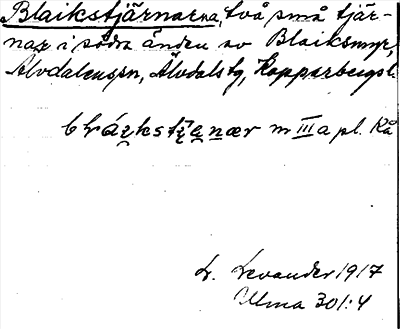 Blaikstjärnarna, två små tjär-
nar i södra änden av Blaikmyr,
Älvdalens sn, Älvdals tg, Kopparbergs l.
m III a pl. Kå
L. Levander 1917
Ulma 301:4